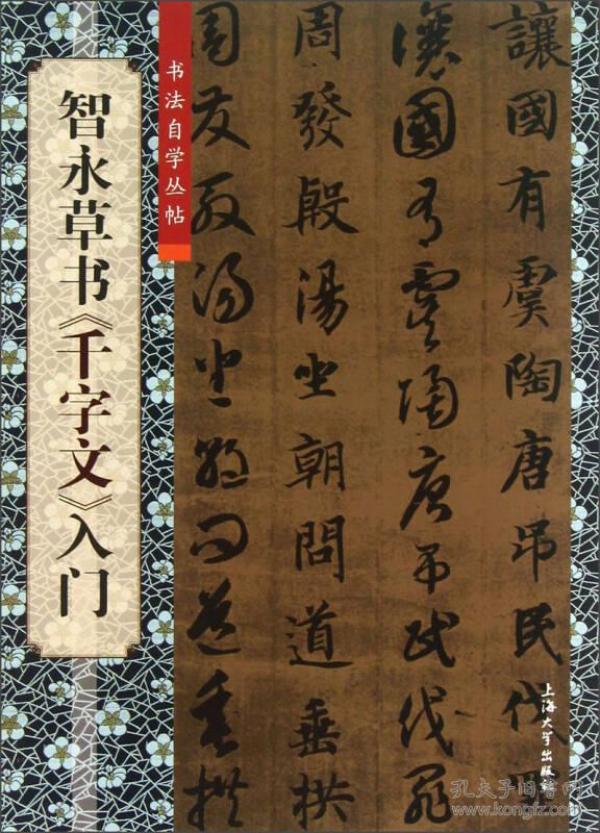 书法自学丛帖
智永草书《千字文》入门
讓國有虞陶唐吊民伐
讓國有虞陶唐吊民伐罪
周發殷湯坐朝問道垂拱
周發殷湯坐朝問道垂拱
上海大学出版社
孔夫子旧书网
www.kongfz.com